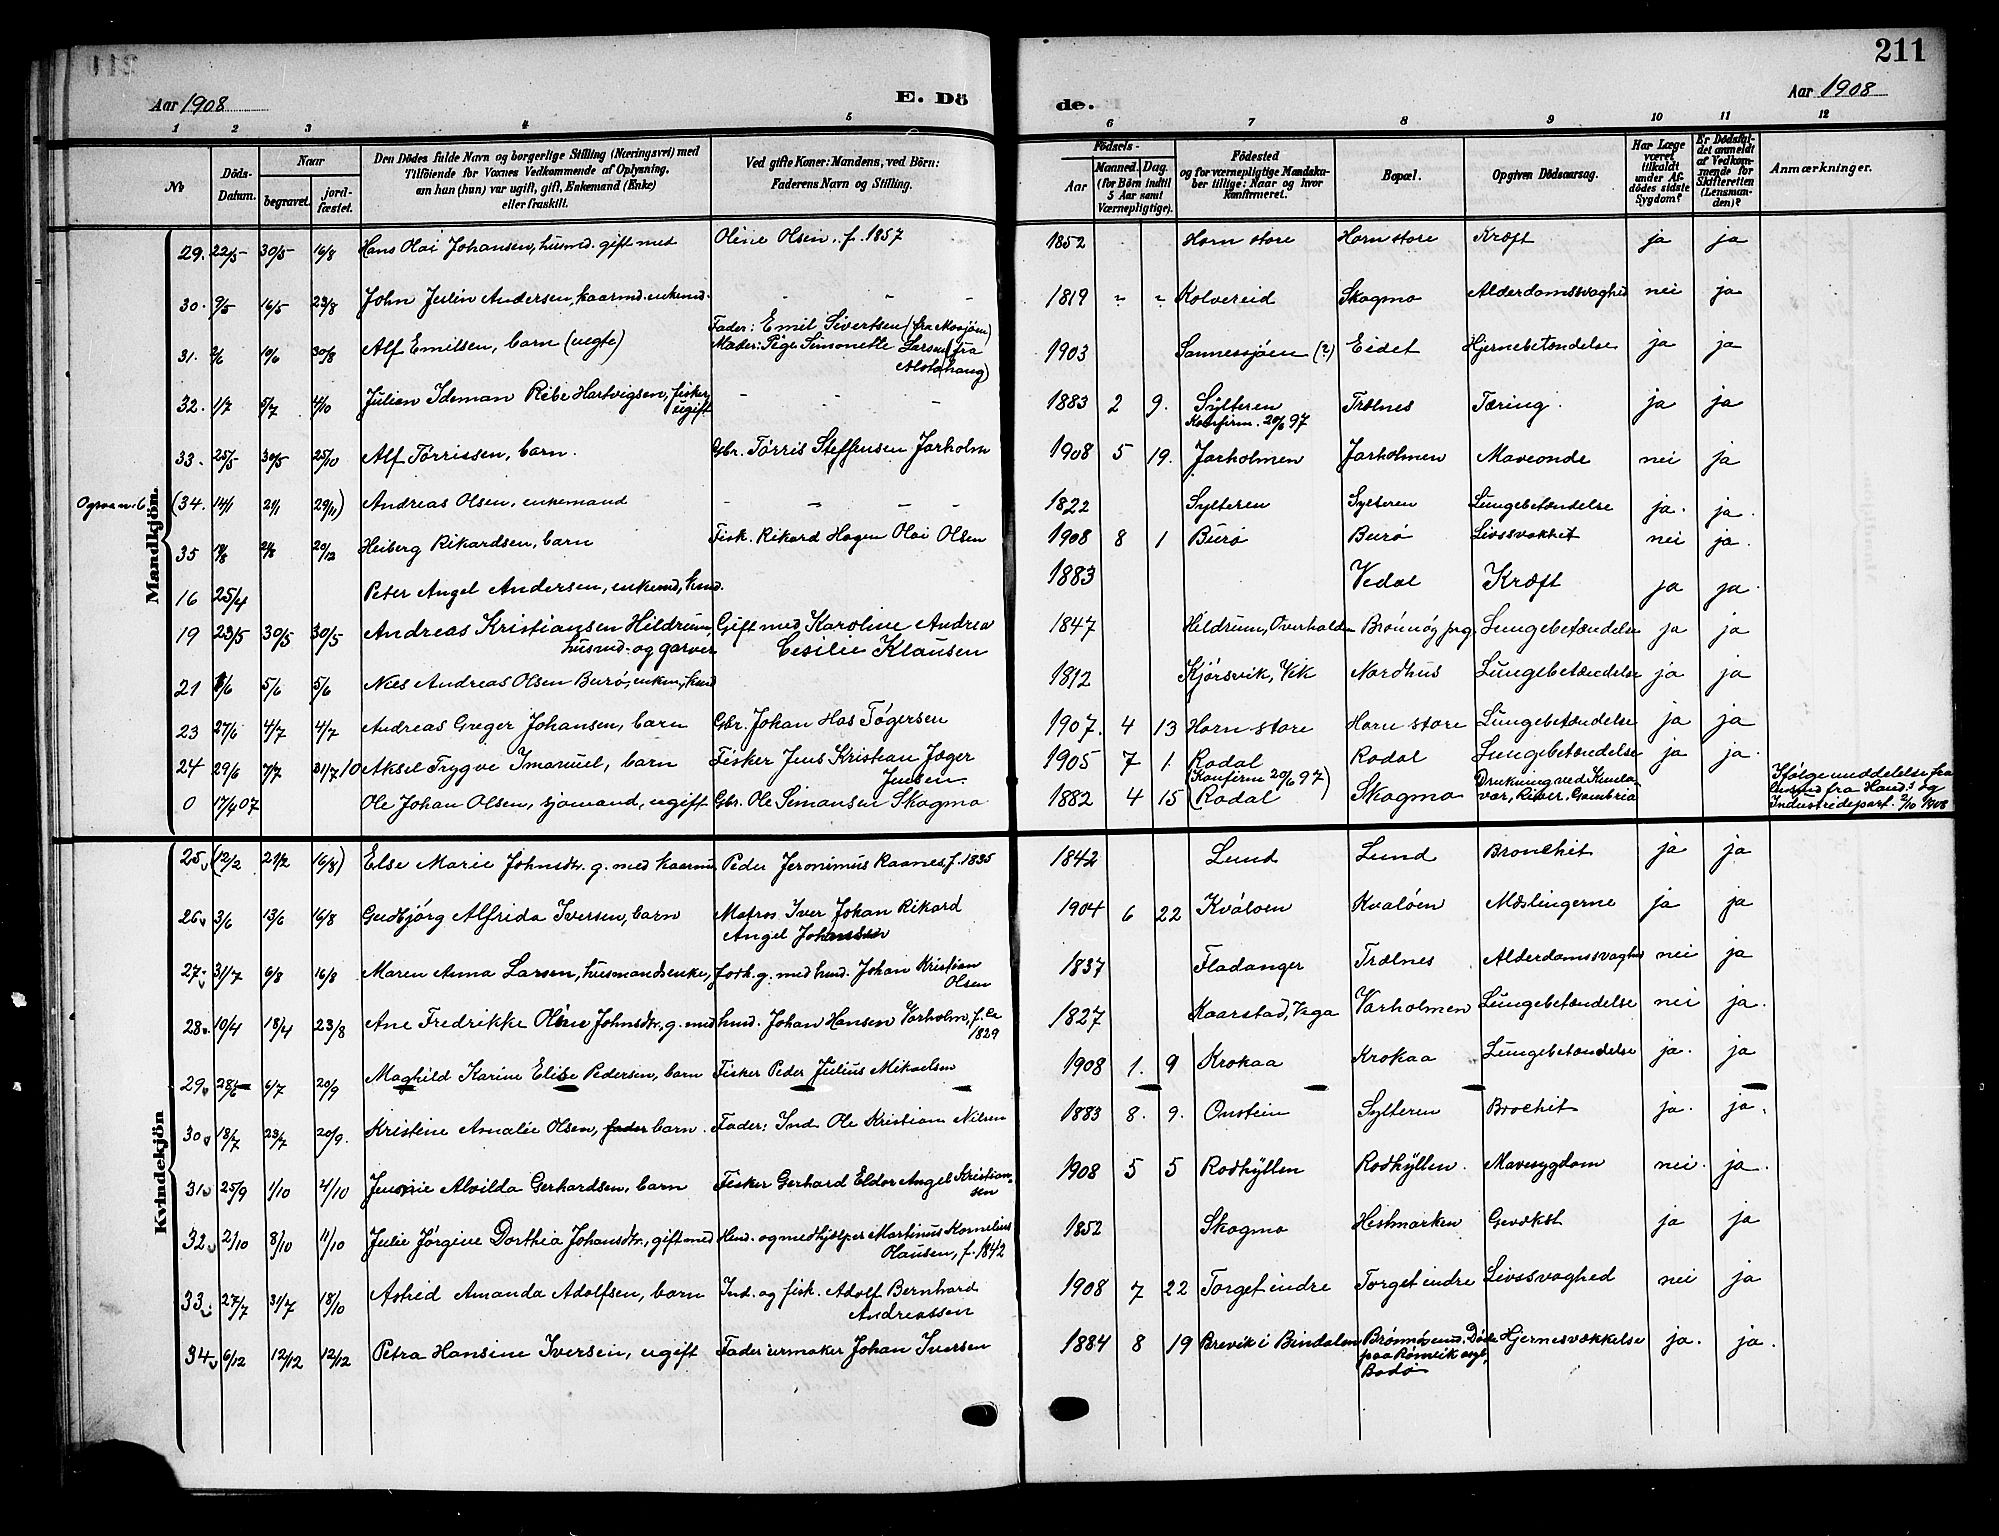 211
Aar 1908
E. Dö
de.
Aar 1908
1 2 3 4 5 6 7 8 9 10 11 12
No
Döds-
Datum.
Naar
begravet.
jord-
fæstet.
Den Dödes fulde Navn og borgerlige Stilling (Næringsvei) med
Tilföiende for Voxnes Vedkommende af Oplysning.
om han (hun) var ugift, gift, Enkemand (Enke)
eller fraskilt.
Ved gifte Koner: Mandens, ved Börn:
Faderens Navn og Stilling.
Födsels-
Aar
Maaned. Dag.
(for Börn indtil
5 Aar samt
Værnepligtige).
Födested
og for værnepligtige Mandska-
ber tillige: Naar og hvor
konfirmeret.
Bopæl.
Opgiven Dödsaarsag.
Har Læge
været
tilkaldt
under Af-
dödes sidste
Sygdom?
Er Dödsfal-
det anmeldt
af Vedkom-
mende for
Skifteretten
(Lensman-
den)?
Anmærkninger.
Mandkjön.
29. 22/5 30/5 16/8 Hans Olai Johansen, husmd. gift med Oline Olsen, f. 1857 1852 Horn store Horn store Kræft ja ja
30. 9/5 16/5 23/8 John Julin Andersen, kaarmd. enkemd. - - - - 1819 " " Kolvereid Skogmo Alderdomssvaghed nei ja
Fader: Emil Sivertsen (fra Mosjöen)
31. 2/6 10/6 30/8 Alf Emilsen, barn (uegte) Moder: Pige Simonette Larsen (fra
Alstahaug) 1903 Sannessjöen (?) Eidet Hjernebetændelse ja ja
32. 1/7 5/7 4/10 Julian Ideman Ribe Hartvigsen, fisker,
ugift - - - 1883 2 9. Sylteren
Konfirm. 20/6 97 Trælnes Tæring. ja ja
33. 25/5 30/5 25/10 Alf Törrissen, barn. Gbr. Törris Steffensen Jarholm 1908 5 19. Jarholmen Jarholmen Maveonde nei ja
(34. 14/1 21/1 29/11) Andreas Olsen, enkemand - - - - 1822 Sylteren Sylteren Lungebetændelse ja. ja.
35 20/12 Heiberg Rikardsen, barn Fisk. Rikard Hagen Olai Olsen 1908 8 1 Burø Burø nei ja.
16 25/4 Peter Angel Andersen, enkemd, 1883 Vedal Kræft ja ja.
19 23/5 30/5 30/5 Andreas Kristiansen Hildrum,
husmd. og garver Gift med Karoline Andrea
Cesilie Klausen 1847 Hildrum, Overhalden Brönnöy prg. Lungebetændelse ja ja
21 5/6 5/6 Niels Andreas Olsen Burø, enkem, 1812 Kjørsvik, Vik Nordhus Lungebetændelse ja ja
23 27/6 4/7 4/7 Andreas Greger Johansen, barn Gbr. Johan Has Tøgersen 1907. 4 13 Horn store Horn store Lungebetændelse ja ja
24 29/6 7/7 31/7 10 Aksel Trygve Imanuel, barn Fisker Jens Kristian Jæger
Jensen 1905 7 1 Rodal Rodal Lungebetændelse ja ja.
0 17/6 07 Ole Johan Olsen, sjømand, ugift Gbr. Ole Simonsen Skogmo 1882 4 15 (Konfirm 20/6 97)
Rodal Skogmo Drukning ved
River, Gambria Ifølge meddelelse fra
fra Hand. og
Industridepart. 2/10 1908
Kvindekjön
25 (12/2 21/2 16/8) Else Marie Johnsdtr. g. med kaarmd. Peder Jeronimus Raanes, f. 1835 1842 Lund Lund Bronchit ja ja
26 3/6 13/6 16/8 Gudbjörg Alfrida Iversen, barn Matros Iver Johan Rikard
Angel Johansen 1904 6 22 Kvaloen Kvaloen Mæslingerne ja ja
27 31/7 6/8 16/8 Maren Anna Larsen, husmandsenke, forh. g. med husd. Johan Kristian
Olsen 1837 Fladanger Trælnes Alderdomssvaghed nei ja
28 10/4 18/4 23/8 Ane Fredrikke Oline Johnsdtr, g. med husd. Johan Hansen Varholm, f. ca
1829 1827 Kaarstad, Vega Varholmen Lungebetændelse nei ja.
29 28/6 6/7 20/9 Maghild Karine Elise Pedersen, barn Fisker Peder Julius Mikaelsen 1908 1. 9 Krokaa Krokaa Lungebetændelse ja. ja
30 18/7 23/7 20/9. Kristine Amalie Olsen, fader barn. Fader: Ind Ole Kristian Nilsen 1883 8. 9. Onstein Sylteren Brochit ja. ja.
31 25/9 1/10 4/10 Jennie Alvilda Gerhardsen, barn Fisker Gerhard Eldor Angel Kristian-
sen 1908 5 5 Rodhyllen Rodhyllen. Mavesygdom nei. ja.
32 2/10 8/10 11/10 Julie Jörgine Dorthea Johansdtr., gift med Hmd. og medhjælper Martinus Kornelius
Olausen, f. 1842 1852 Skogmo Hestmarken Gevækst ja ja
33 27/7 31/7 18/10 Astrid Amanda Adolfsen, barn Ind. og fisk. Adolf Bernhard
Andreassen 1908 7 22 Torget indre Torget indre Livssvaghed nei ja
34 6/12 12/12 12/12 Petra Hansine Iversen, ugift Fader urmaker Johan Iversen 1884 8 19 Brevik i Bindalen Brönnösund. Døde
paa Rønvik asyl,
Bodø Hjernesvækkelse ja. ja.